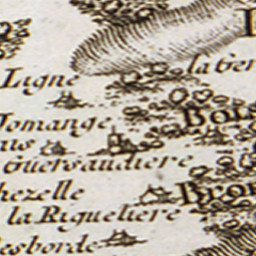 Ligne
la Ger
Tomange
Bois
Guersaudiere
hezelle
Bro
la Rigueliere
esborde